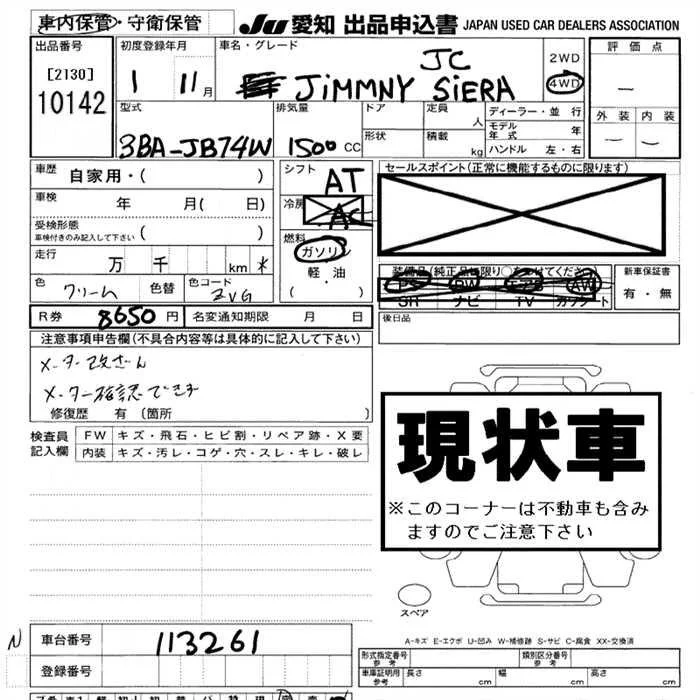 車内保管・守衛保管
JU 愛知 出品申込書 JAPAN USED CAR DEALERS ASSOCIATION
出品番号
[2130]
10142
初度登録年月
1 11月
車名・グレード
JC
JiMMNY SiERA
2WD
4WD
評価点
—
外装 内装
— —
型式
3BA-JB74W
排気量
1500 CC
ドア
形状
定員
人
積載
kg
ディーラー・並行
モデル年式 年
ハンドル 左・右
車歴 自家用・( )
車検 年 月( 日)
受検形態
車検付きのみ記入して下さい ( )
走行 万 千 km *
色 クリーム 色替 色コード ZVG
シフト
AT
冷房
AC
燃料
ガソリン
軽・油
( )
セールスポイント(正常に機能するものに限ります)
装備品(純正品に限り○をつけてください)
PS PW エアB AW
SR ナビ TV カワシート
新車保証書
有・無
R券 8650円 名変通知期限 月 日
後日品
注意事項申告欄(不具合内容等は具体的に記入して下さい)
メーター改ざん
メーター確認できず
修復歴 有〔箇所 〕
検査員
記入欄
FW キズ・飛石・ヒビ割・リペア跡・X要
内装 キズ・汚レ・コゲ・穴・スレ・キレ・破レ
現状車
※このコーナーは不動車も含み
ますのでご注意下さい
スペア
A-キズ E-エクボ U-凹み W-補修跡 S-サビ C-腐食 XX-交換済
N 車台番号 113261
登録番号
形式指定番号
参考
類別区分番号
参考
車庫証明用
参考
長さ cm 幅 cm 高さ cm